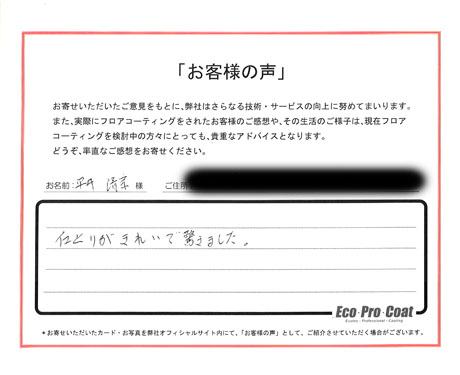 「お客様の声」
お寄せいただいたご意見をもとに、弊社はさらなる技術・サービスの向上に努めてまいります。
また、実際にフロアコーティングをされたお客様のご感想や、その生活のご様子は、現在フロア
コーティングを検討中の方々にとっても、貴重なアドバイスとなります。
どうぞ、率直なご感想をお寄せください。
お名前：平井 様 ご住所
仕上りがきれいで驚きました。
Eco・Pro・Coat
Ecoloy・Professional・Coating
＊お寄せいただいたカード・お写真を弊社オフィシャルサイト内にて、「お客様の声」として、ご紹介させていただく場合がございます。